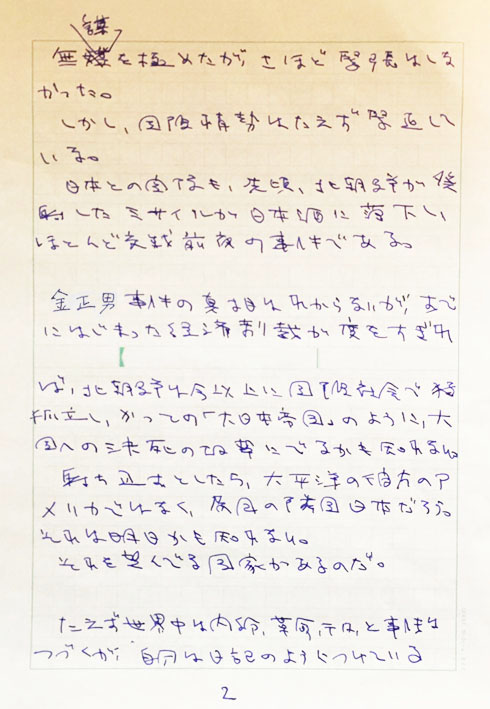 謀
無謀を極めたが、さほど緊張はしな
かった。
しかし、国際情勢はたえず緊迫して
いる。
日本との関係も、先頃、北朝鮮が発
射したミサイルが日本海に落下し、
ほとんど交戦前夜の事件である。
金正男事件の真相はわからないが、すで
にはじまった経済制裁が度をすぎれ
ば、北朝鮮は今以上に国際社会で
孤立し、かつての「大日本帝国」のように、大
国への決死の攻撃にでるかも知れない。
としたら、太平洋の彼方のア
メリカではなく、隣国日本だろう。
それは明日かも知れない。
それを望んでる国家があるのだ。
たえず世界中は内紛、革命、テロ、と事件は
つづくが、自分は日記のようにつけている
2